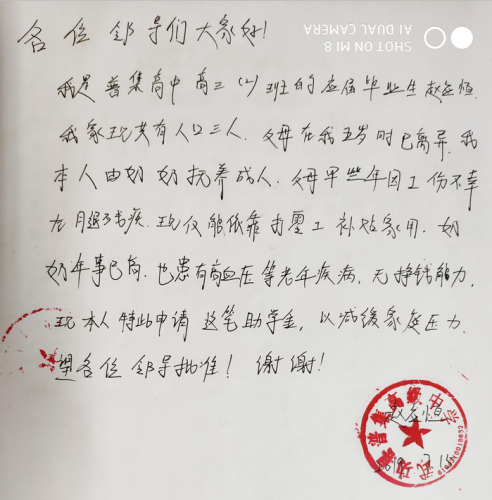 SHOT ON MI 8
AI DUAL CAMERA
各位领导们大家好!
我是普集高中高三(2)班的应届毕业生赵
我家现共有人口三人.父母在我五岁时已离异.我
本人由奶奶抚养成人.父母早些年因工伤不幸
残疾.现仅能依靠打零工补贴家用.奶
奶年事已高.也患有高血压等老年疾病.无挣钱能力.
现本人特此申请这笔助学金,以减缓家庭压力.
望各位领导批准!谢谢!
武功县普集高级中学